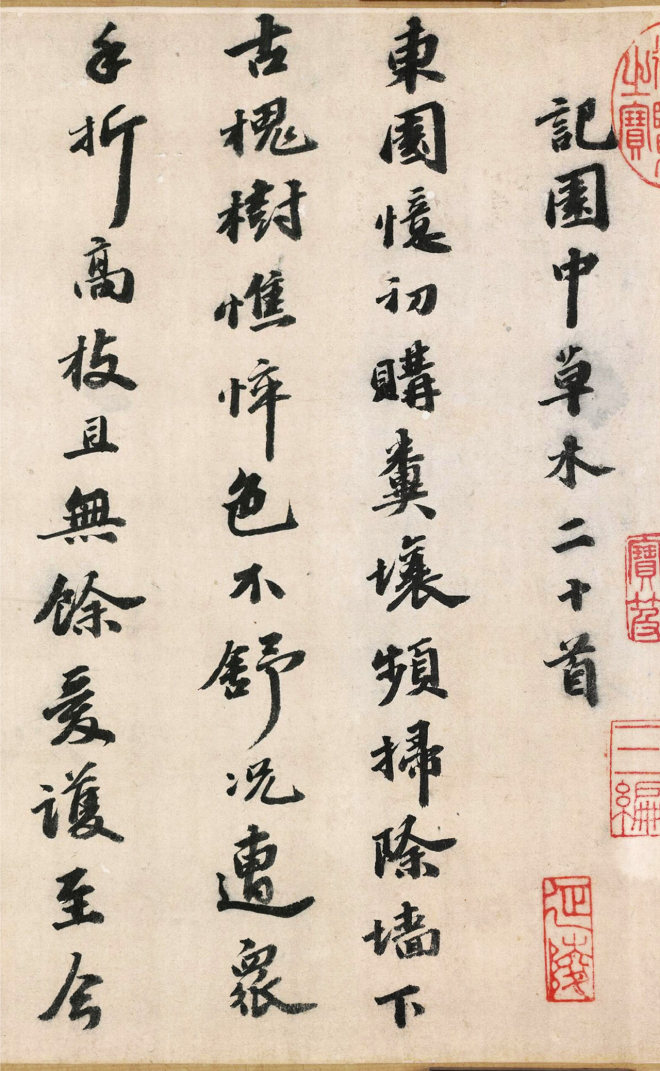 記園中草木二十首
東園憶初購糞壤頻掃除墻下
古槐樹憔悴色不舒況遭衆
手折高枝且無餘愛護至今
之寶
三編
延陵